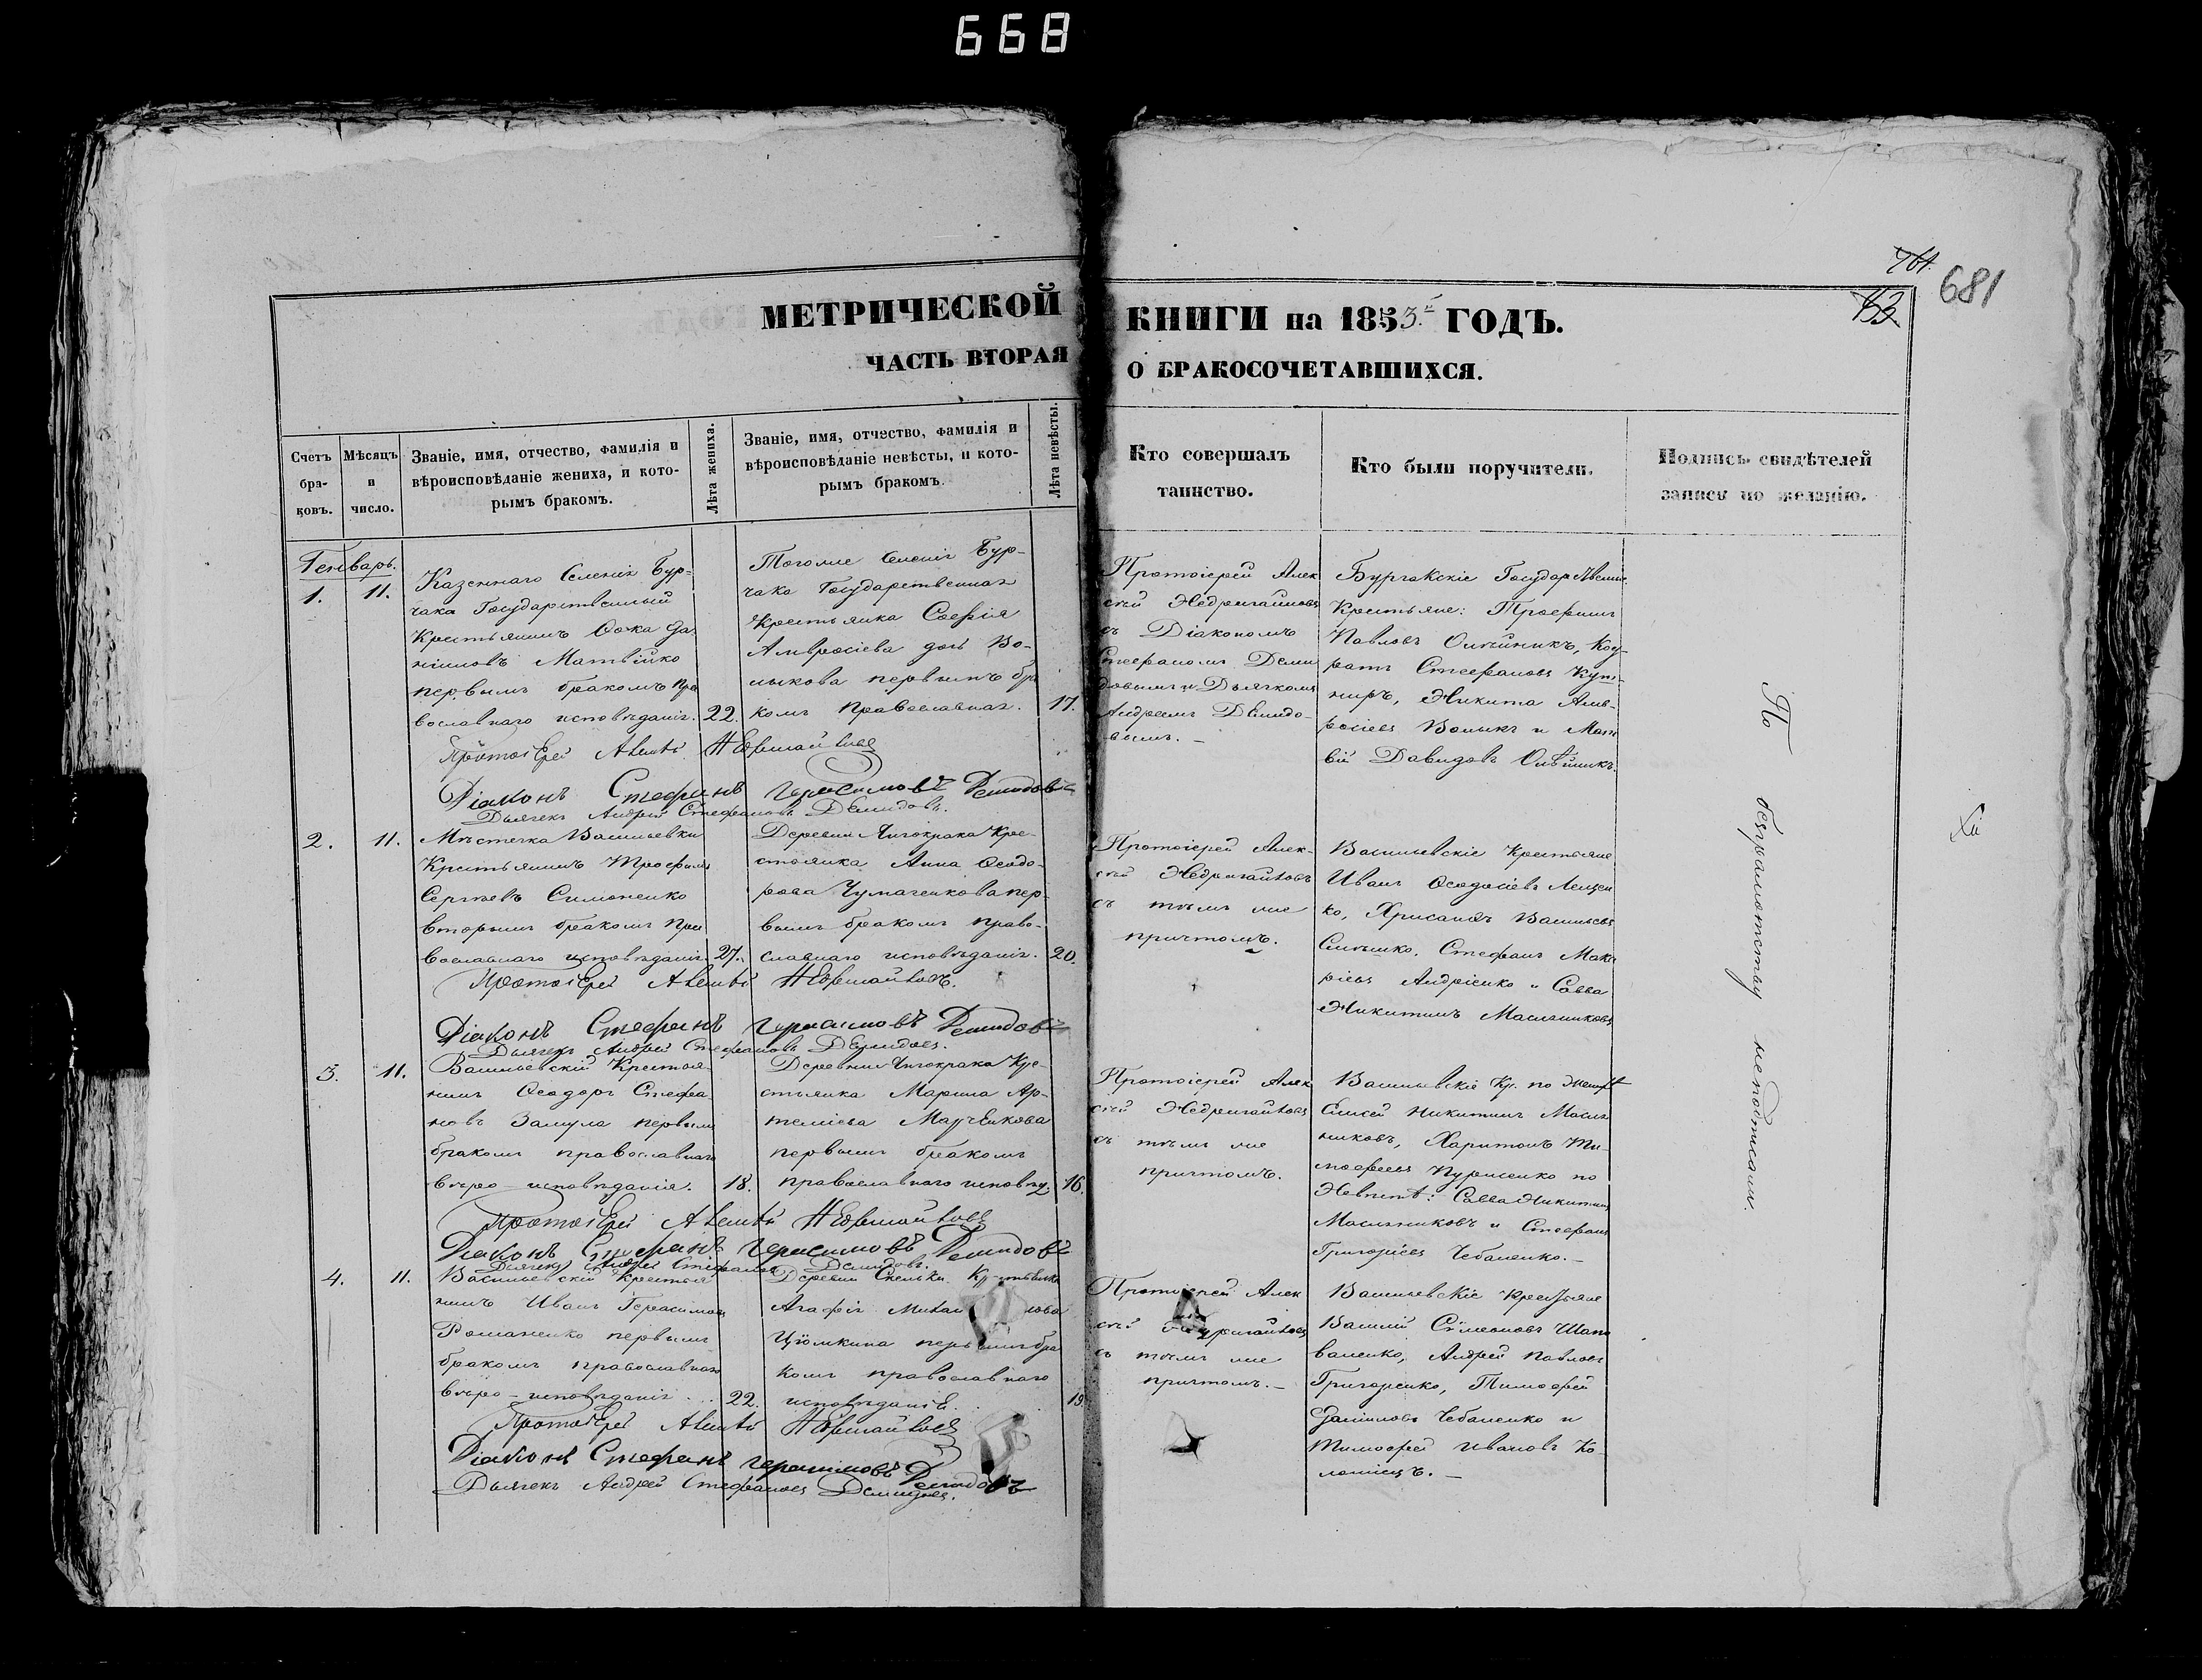 668
761.
681
53
МЕТРИЧЕСКОЙ КНИГИ на 1853.й ГОДЪ.
ЧАСТЬ ВТОРАЯ О БРАКОСОЧЕТАВШИХСЯ.
Счетъ бра-
ковъ.
Мѣсяцъ
и
число.
Званіе, имя, отчество, фамилія и
вѣроисповѣданіе жениха, и кото-
рымъ бракомъ.
Лѣта жениха.
Званіе, имя, отчество, фамилія и
вѣроисповѣданіе невѣсты, и кото-
рымъ бракомъ.
Лѣта невѣсты.
Кто совершалъ
таинство.
Кто были поручители.
Подпись свидѣтелей
записи по желанію.
Генварь.
1.
11.
Казеннаго Селенія Бур-
чака Государственный
Крестьянинъ Ѳока Да
ніиловъ Матвійко
первымъ бракомъ пра
вославнаго исповѣданія.
22.
Тогоже Селенія Бур-
чака Государственная
Крестьянка Софія
Амвросіева дочь Во-
лыкова первымъ бра
комъ Православная.
17.
Протоіерей Алек
сѣй Недригайловъ
съ Діакономъ
Стефаномъ Деми
довымъ и Дьячкомъ
Андреемъ Демидо-
вымъ. -
Бурчакскіе Государствен.
Крестьяне: Трофимъ
Павловъ Олѣйникъ, Код-
ратъ Стефановъ Куш-
ниръ, Никита Амв-
росіевъ Волыкъ и Мат
вій Давидовъ Олѣйникъ.
Протоіерей Алексѣй Недригайловъ
Діаконъ Стефанъ Герасимовъ Демидовъ
Дьячекъ Андрей Стефановъ Демидовъ.
2.
11.
Мѣстечка Васильевки
Крестьянинъ Трофимъ
Сергѣевъ Симоненко
вторымъ бракомъ Пра
вославнаго исповѣданія.
27.
Деревни Янчокрака Кре-
стьянка Анна Ѳеодо-
рова Чумаченкова пер-
вымъ бракомъ право-
славнаго исповѣданія.
20.
Протоіерей Алек-
сѣй Недригайловъ
съ тѣмъ же
причтомъ.
Васильевскіе Крестьяне
Иванъ Ѳеодосіевъ Лещен
ко, Хрисанфъ Васильевъ
Стефанъ Мака
ріевъ Андріенко и Савва
Никитинъ Масленниковъ
Протоіерей Алексѣй Недригайловъ.
Діаконъ Стефанъ Герасимовъ Демидовъ
Дьячекъ Андрей Стефановъ Демидовъ.
3.
11.
Васильевскій Крестья
нинъ Ѳеодоръ Стефа
новъ Замула первымъ
бракомъ православнаго
вѣро-исповѣданія.
18.
Деревни Янчокрака Кре-
стьянка Марина Ар-
темієва Марченкова
первымъ бракомъ
православнаго исповѣд.
16.
Протоіерей Алек
сѣй Недригайловъ
съ тѣмъ же
причтомъ.
Васильевскіе Кр. по Жених
Елисей Никитинъ Маслен
никовъ, Харитонъ Ти-
мофеевъ по
Невѣстѣ: Савва Никитинъ
Масленниковъ и Стефанъ
Григоріевъ Чебаненко. -
Протоіерей Алексѣй Недригайловъ
Діаконъ Стефанъ Герасимовъ Демидовъ
Дьячекъ Андрей Стефановъ Демидовъ.
4.
11.
Васильевскій Крестья
нинъ Иванъ Герасимовъ
Романенко первымъ
бракомъ православнаго
вѣро-исповѣданія
22.
Деревни Скельки Крестьянка
Агафія Михай лова
Цюмкина первымъ бра
комъ православнаго
исповѣданія.
19
Протоіерей Алек
сѣй Недригайловъ
съ тѣмъ же
причтомъ. -
Васильевскіе Крестьяне
Василій Симеоновъ Шапо
валенко, Андрей Павловъ
Григоренко, Тимофей
Даниловъ Чебаненко и
Тимофей Ивановъ Ко-
ломіецъ. -
Протоіерей Алексѣй Недригайловъ
Діаконъ Стефанъ Герасимовъ Демидовъ
Дьячекъ Андрей Стефановъ Демидовъ.
По безграмотству неподписали.